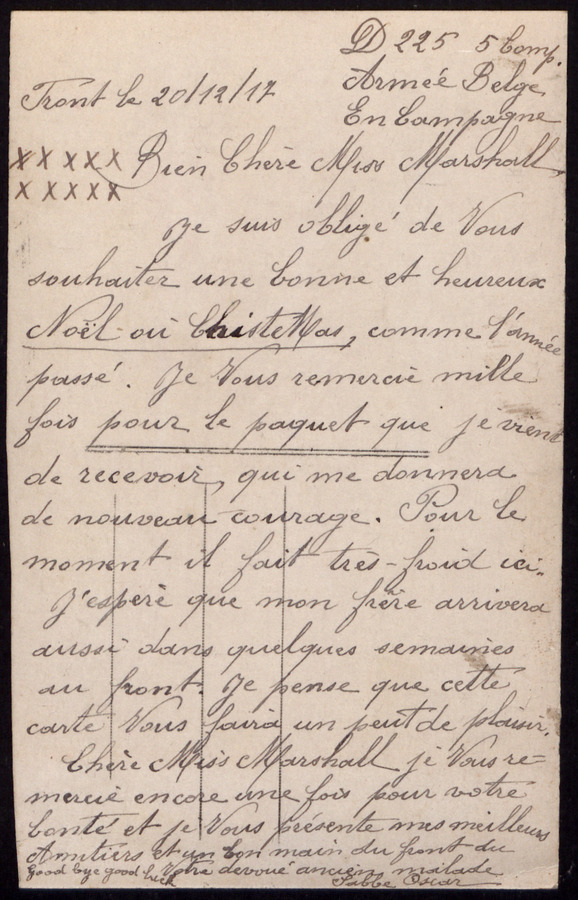 D 225 5 Comp.
Armée Belge
En Campagne
Front le 20/12/17
xx xxx Bien Chère Miss Marshall,
x xxxx
Je suis obligé de Vous
souhaiter une bonne et heureux
Noël ou ChisteMas, comme l'année
passé. Je Vous remercie mille
fois pour le paquet que je vient
de recevoir, qui me donnera
de nouveau courage. Pour le
moment il fait très-froid ici.
J'esperè que mon frère arrivera
aussi dans quelques semaines
au front. Je pense que cette
carte Vous faira un peut de plaisir.
Chère Miss Marshall je Vous re=
mercie encore une fois pour votre
bonté et je Vous présente mes meilleurs
Amitiers et un bon main du front du
Good bye good luck Votre devoué ancien malade
Oscar